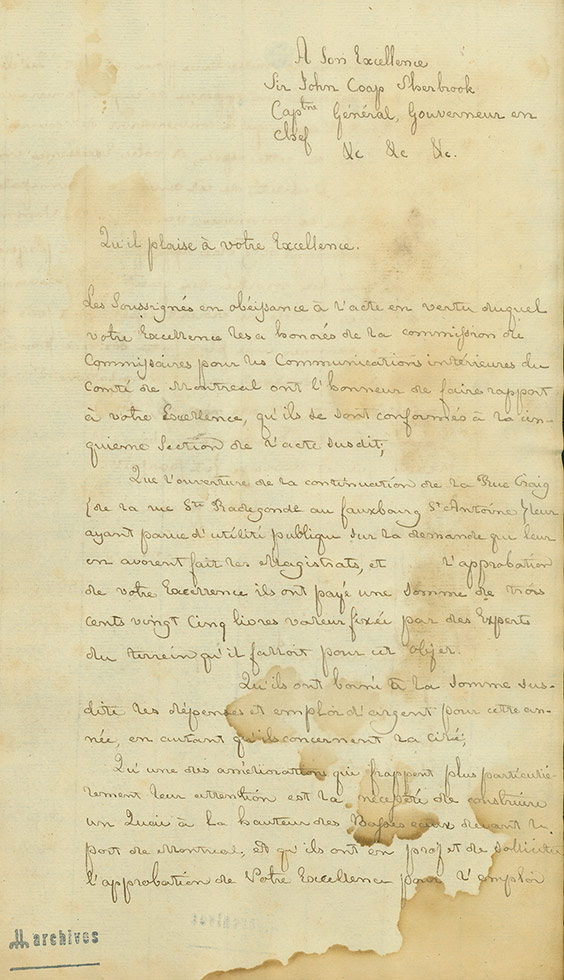 A Son Excellence
Sir John Coap Sherbrook
Cap^tne Général, Gouverneur en
chef
&c &c &c.
Qu'il plaise à votre Excellence.
Les Soussignés en obéissance à l'acte en vertu duquel
votre Excellence les a honorés de la commission de
Commissaires pour les Communications intérieures du
Comté de Montreal ont l'honneur de faire rapport
à votre Excellence, qu'ils se sont conformés à la cin-
quieme Section de l'acte susdit;
Que l'ouverture de la continuation de la Rue Craig
(de la rue S^te Radegonde au fauxbourg S^t Antoine) leur
ayant parue d'utilité publique sur la demande qui leur
en avoient fait les Magistrats, et l'approbation
de votre Excellence ils ont payé une Somme de trois
cents vingt Cinq livres valeur fixée par des Experts
du terrein qu'il falloit pour cet objet.
Qu'ils ont borné à la Somme sus-
dite les dépenses et emploi d'argent pour cette an-
née, en autant qu'ils concernent la cité;
Qu'une des améliorations qui frappent plus particulié-
rement leur attention est la nécessité de construire
un Quai à la hauteur des Basses eaux devant le
port de Montreal, et qu'ils ont en projet de solliciter
l'approbation de Votre Excellence pour l'emploi
archives